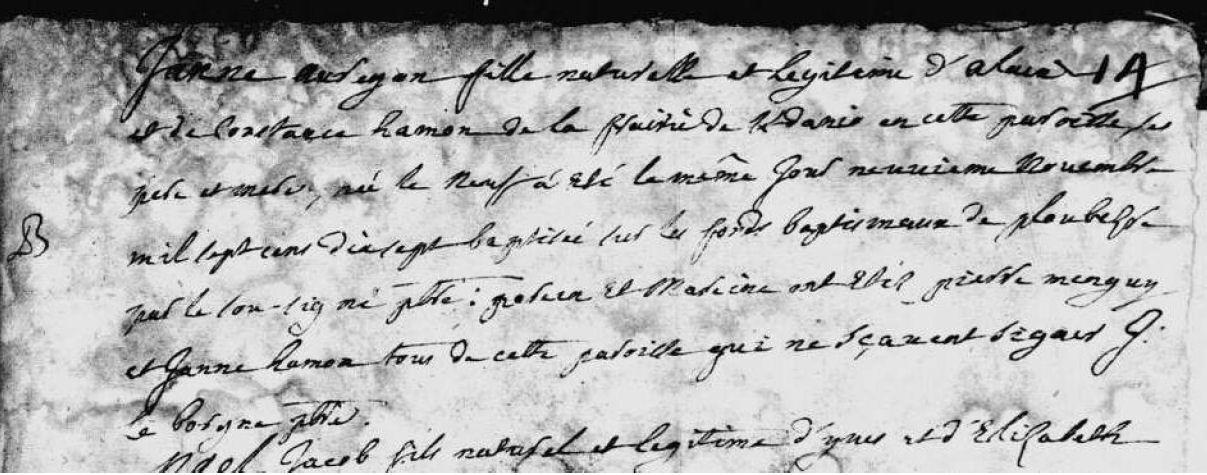 Janne auregan fille naturelle et legitime d'alain 14
et de Constance hamon de la frairie de Kdanio en cette paroisse ses
pere et mere, née le neuf a eté le même Jour neuvieme Novembre
B
mil sept cens dix sept baptisée sur les fonds baptismaux de ploubezre
par le sou-signé ptre : parein Et Mareine ont Eté pierre menguy
et Janne hamon tous de cette paroisse qui ne sçavent signer J:
le borgne ptre.
Jacob fils naturel et legitime d'yves et d'Elizabeth